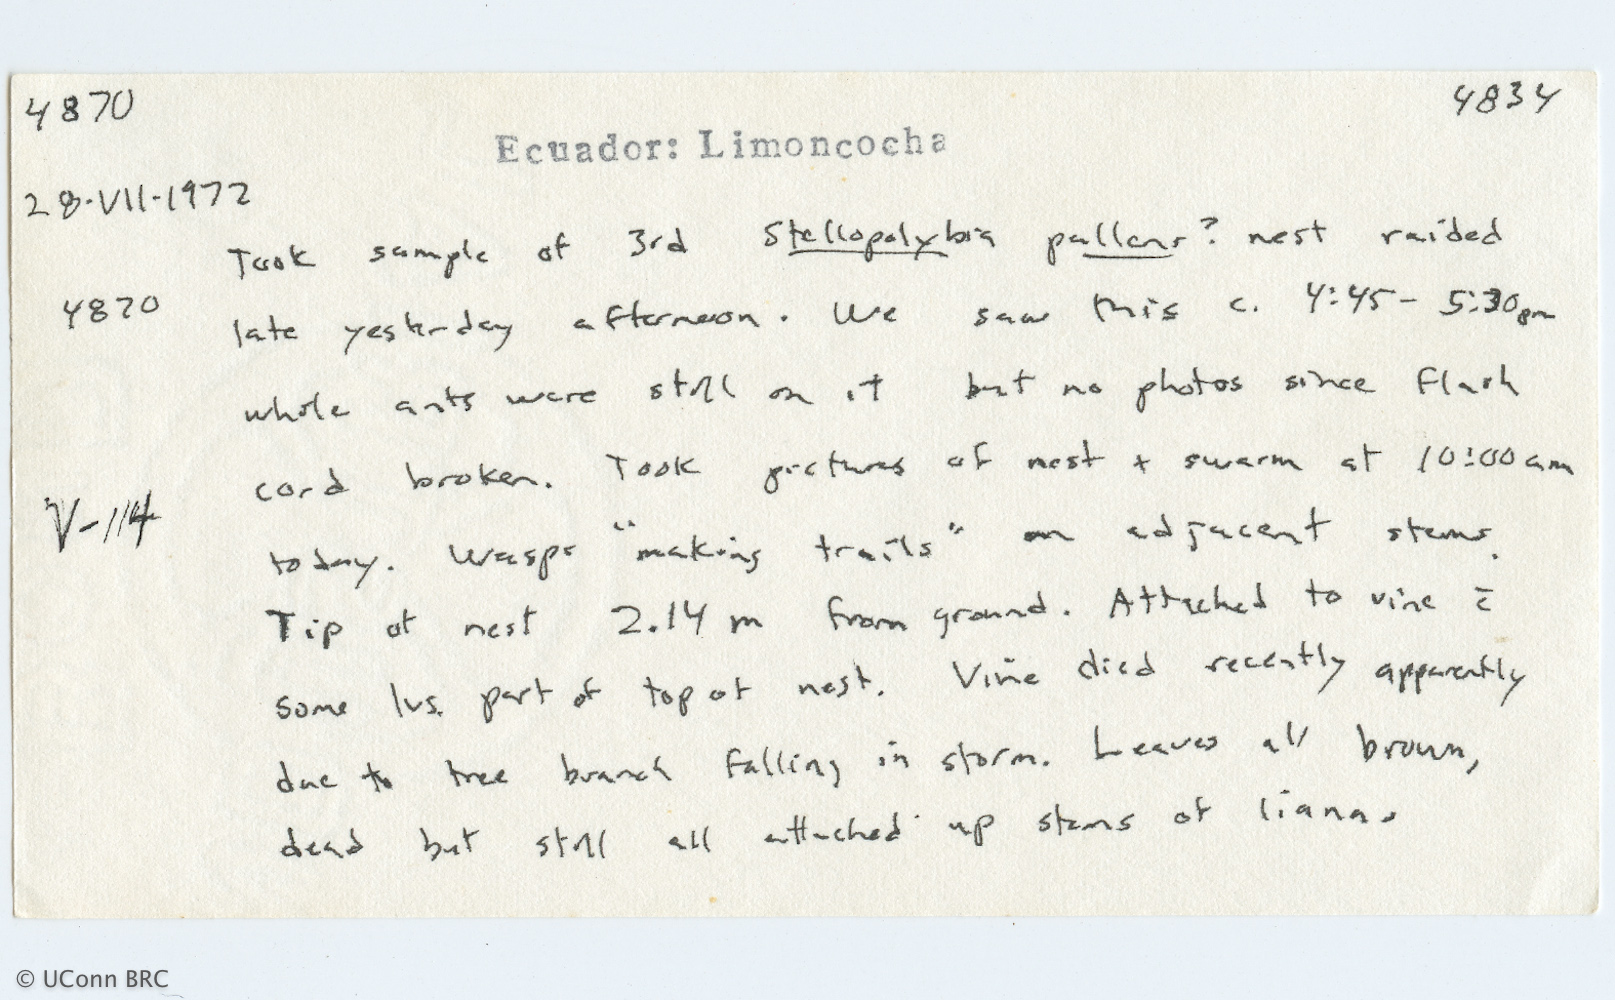 4870
4834
Ecuador: Limoncocha
28-VII-1972
Took sample of 3rd Stellopolybia pallens? nest raided
4870
late yesterday afternoon. We saw this c. 4:45 - 5:30pm
while ants were still on it but no photos since flash
cord broken. Took pictures of nest + swarm at 10:00am
V-114
today. Wasps "making trails" on adjacent stems.
Tip of nest 2.14 m from ground. Attached to vine c̄
some lvs. part of top of nest. Vine died recently apparently
due to tree branch falling in storm. Leaves all brown,
dead but still all attached up stems of liana.
© UConn BRC